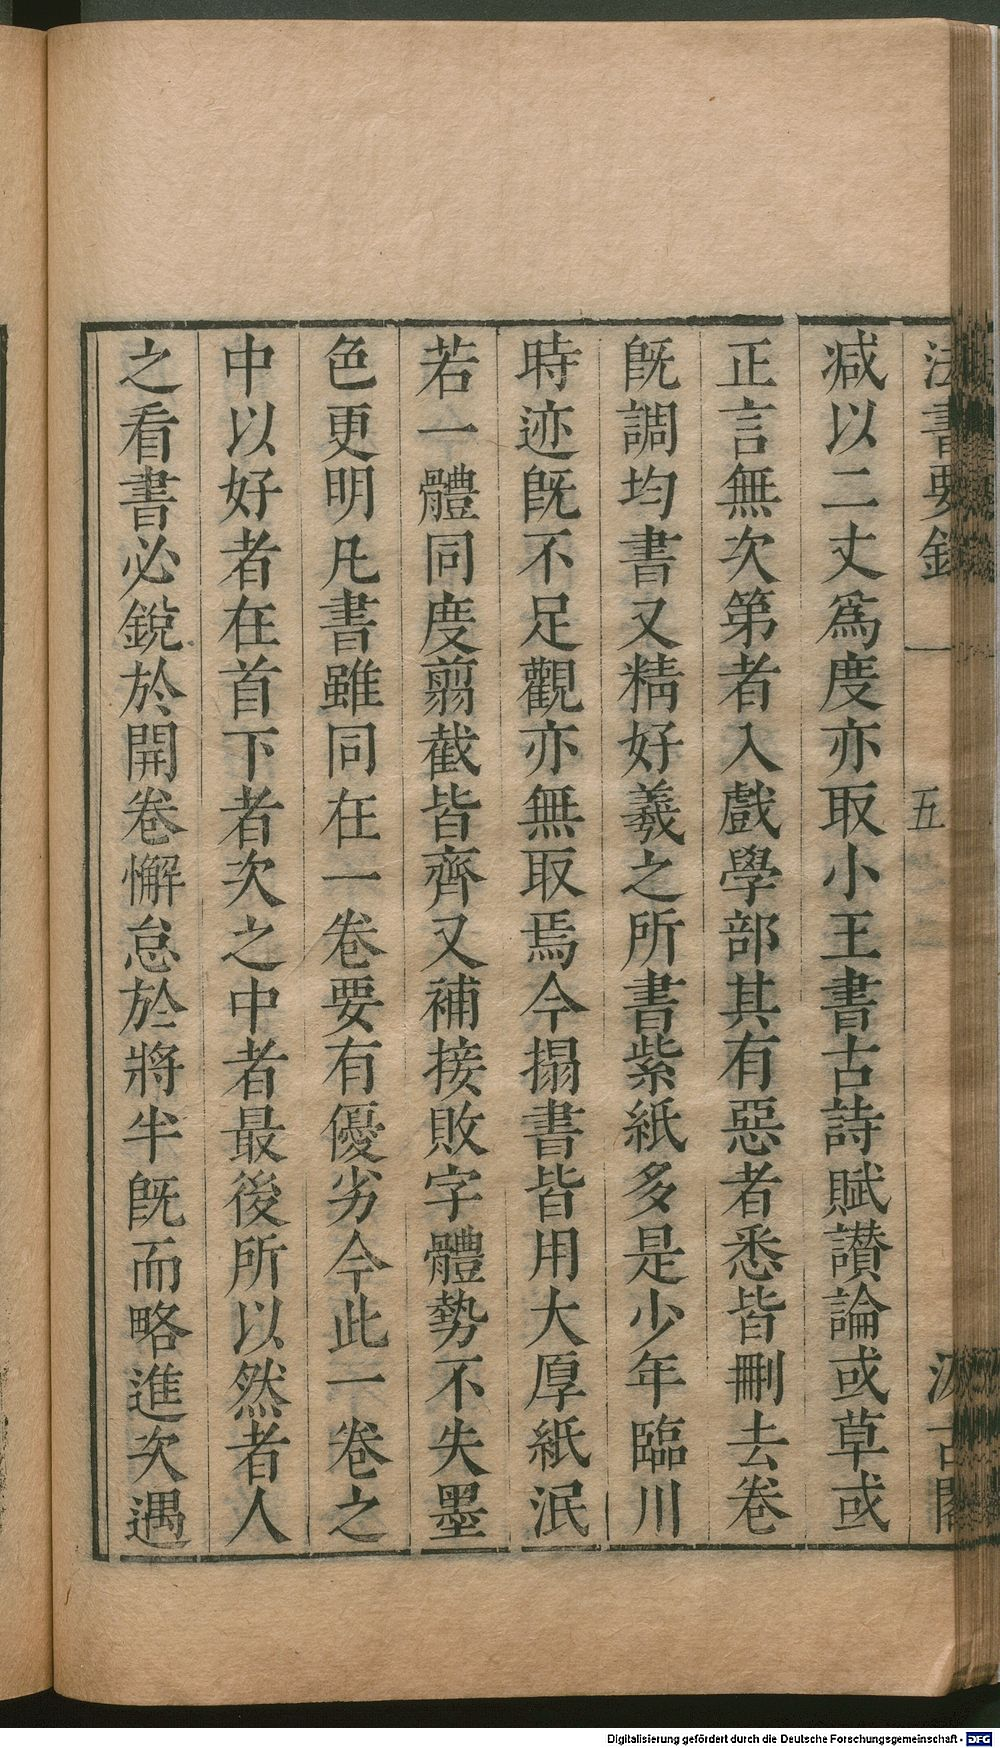 法書要錄 一 五 汲古閣
减以二丈爲度亦取小王書古詩賦讃論或草或
正言無次第者入戲學部其有惡者悉皆刪去卷
旣調均書又精好羲之所書紫紙多是少年臨川
時迹旣不足觀亦無取焉今搨書皆用大厚紙泯
若一體同度剪截皆齊又補接敗字體勢不失墨
色更明凡書雖同在一卷要有優劣今此一卷之
中以好者在首下者次之中者最後所以然者人
之看書必銳於開卷懈怠於將半旣而略進次遇
Digitalisierung gefördert durch die Deutsche Forschungsgemeinschaft - DFG